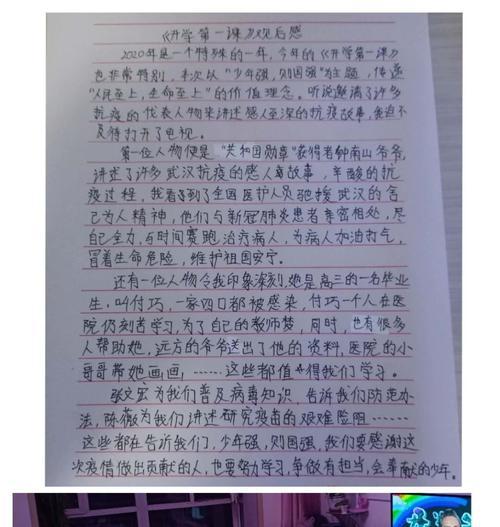 《开学第一课》观后感
2020年是一个特殊的一年，今年的《开学第一课》
也非常特别，本次以“少年强，则国强”为主题，传递
“人民至上，生命至上”的价值理念。听说邀请了许多
抗疫的代表人物来讲述感人至深的抗疫故事，我迫不
及待打开了电视。
第一位人物便是“共和国勋章”获得者钟南山爷爷，
讲述了许多武汉抗疫的感人故事，辛酸的抗
疫过程，我看到了全国医护人员驰援武汉的舍
己为人精神，他们与新冠肺炎患者亲密相处，尽
自己全力，与时间赛跑治疗病人，为病人加油打气，
冒着生命危险，维护祖国安宁。
还有一位人物令我印象深刻，她是高三的一名毕业
生，叫付巧，一家四口都被感染，付巧一个人在医
院仍刻苦学习，为了自己的教师梦，同时，也有很多
人帮助她，远方的爷爷送出了他的资料，医院的小
哥哥带她画画，……这些都值得我们学习。
张文宏为我们普及病毒知识，告诉我们防范办
法，陈薇为我们讲述研究疫苗的艰难险阻……
这些都在告诉我们，少年强，则国强，我们要感谢这
次疫情做出贡献的人，也要努力学习，争做有担当，会奉献的少年。